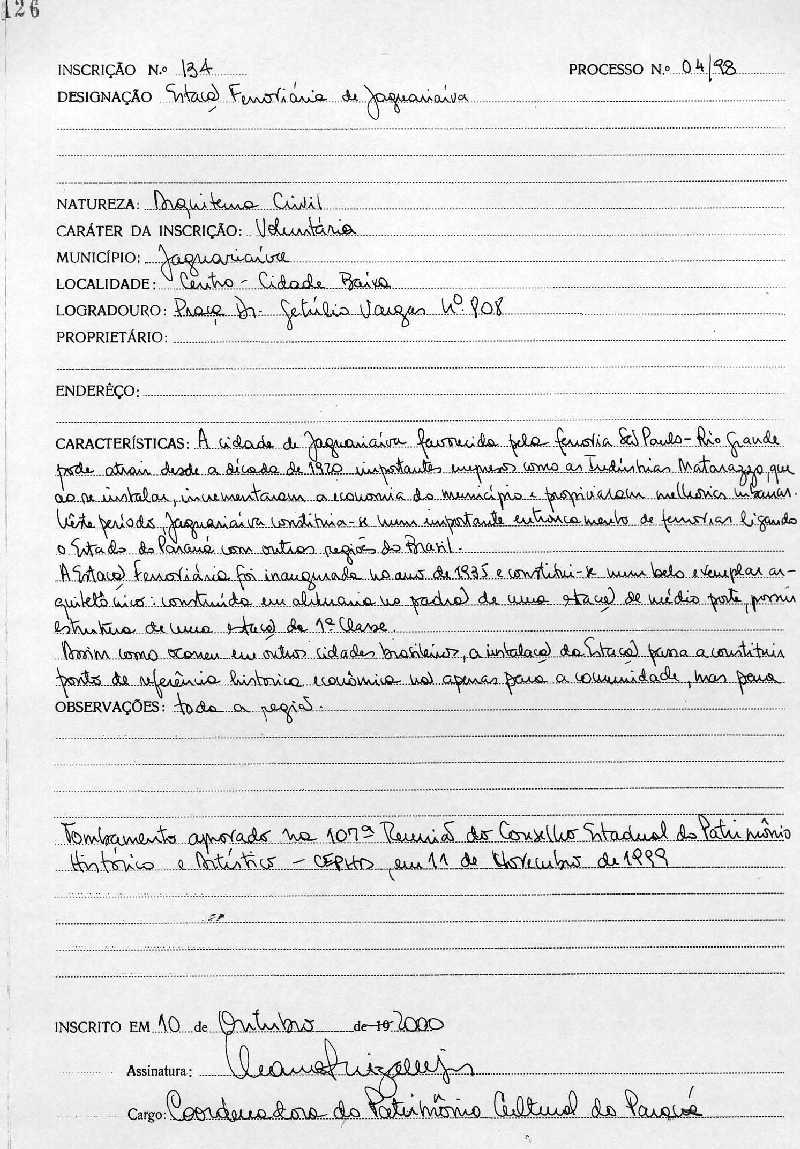 126
INSCRIÇÃO N.º 134 PROCESSO N.º 04/98
DESIGNAÇÃO Estação Ferroviária de Jaguariaíva
NATUREZA: Arquitetura Civil
CARÁTER DA INSCRIÇÃO: Voluntária
MUNICÍPIO: Jaguariaíva
LOCALIDADE: Centro - Cidade Baixa
LOGRADOURO: Praça Dr. Getúlio Vargas Nº 808
PROPRIETÁRIO:
ENDERÊÇO:
CARACTERÍSTICAS: A cidade de Jaguariaíva favorecida pela ferrovia São Paulo - Rio Grande
pode atrair desde a década de 1920 importantes empresas como as Indústrias Matarazzo, que
ao se instalar, incrementaram a economia do município e propiciaram melhorias urbanas.
Neste período, Jaguariaíva constituia-se num importante entroncamento de ferrovias ligando
o Estado do Paraná com outras regiões do Brasil.
A Estação Ferroviária foi inaugurada no ano de 1935 e constitui-se num belo exemplar ar-
quitetônico: construída em alvenaria no padrão de uma estação de médio porte, possui
estrutura de uma estação de 1ª Classe.
Assim como ocorreu em outras cidades brasileiras, a instalação da Estação passa a constituir
ponto de referência historica econômica não apenas para a comunidade, mas para
OBSERVAÇÕES: toda a região.
Tombamento aprovado na 107ª Reunião do Conselho Estadual do Patrimônio
Histórico e Artístico - CEPHA, em 11 de Novembro de 1999
INSCRITO EM 10 de Outubro de 19 2000
Assinatura:
Cargo: Coordenadora do Patrimônio Cultural do Paraná